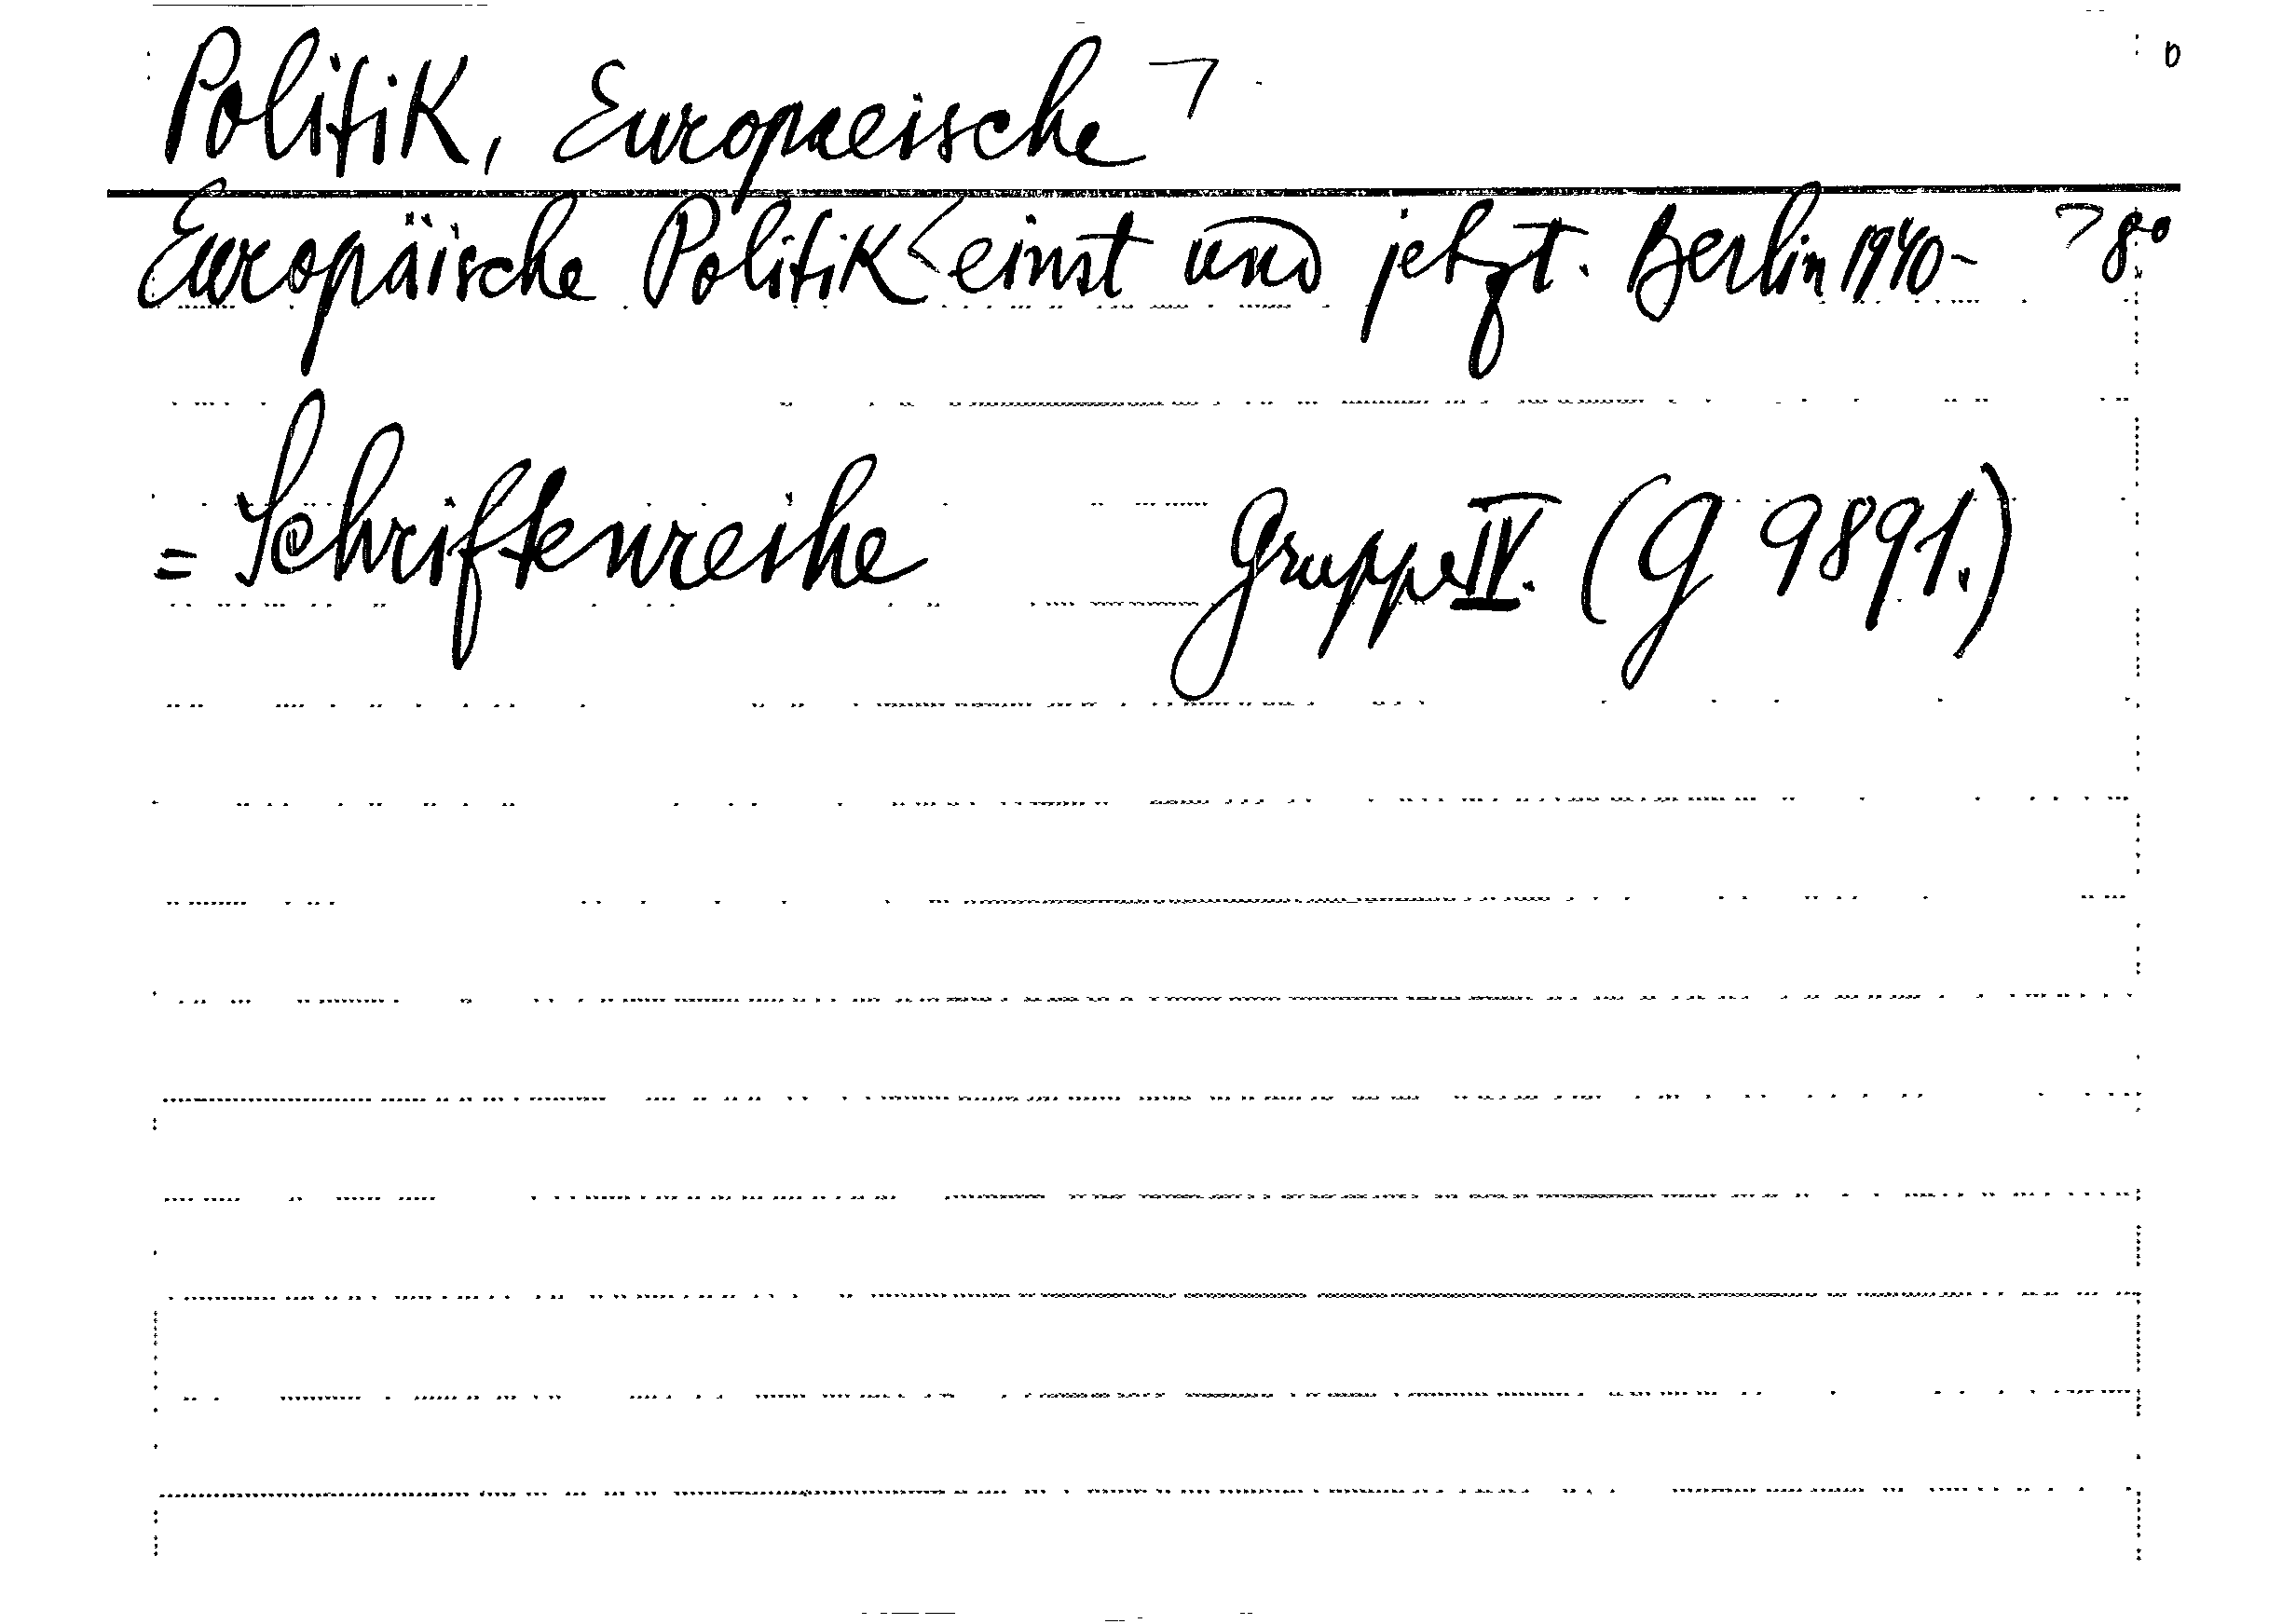 Politik, Europaeische ¬
Europäische Politik < einst und jetzt. Berlin 1940- > 8°
= Schriftenreihe Gruppe IV. (G 9891.)